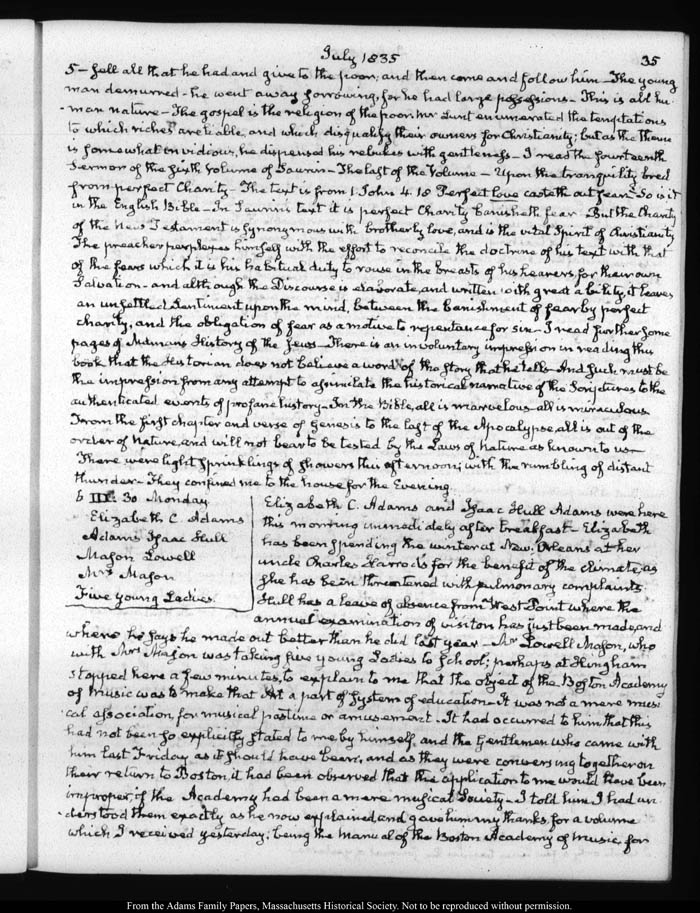 July 1835
35
5 — sell all that he had and give to the poor, and then come and follow him — The young
man demurred — he went away sorrowing, for he had large possessions — This is all hu-
-man nature — The gospel is the religion of the poor. Mr Lunt enumerated the temptations
to which riches are liable, and which disqualify their owners for Christianity; but as the theme
is somewhat invidious, he dispensed his rebukes with gentleness — I read the fourteenth
Sermon of the sixth Volume of Saurin — The last of the Volume — Upon the tranquility bred
from perfect Charity — The text is from 1 John 4. 18 Perfect love casteth out fear — So is it
in the English Bible — In Saurin's text it is perfect Charity banisheth fear — But the Charity
of the New Testament is synonymous with brotherly love, and is the vital Spirit of Christianity
The preacher perplexes himself with the effort to reconcile the doctrine of his text with that
of the fears which it is his habitual duty to rouse in the breasts of his hearers, for their own
Salvation — and although the Discourse is elaborate, and written with great ability, it leaves
an unsettled Sentiment upon the mind, between the banishment of fear by perfect
charity, and the obligation of fear as a motive to repentance for sin — I read further some
pages of Milman's History of the Jews — There is an involuntary impression in reading this
book that the Historian does not believe a word of the story that he tells — And such must be
the impression from any attempt to assimilate the historical narrative of the Scriptures to the
authenticated events of profane history — In the Bible, all is marvelous — all is miraculous
From the first chapter and verse of Genesis to the last of the Apocalypse, all is out of the
order of Nature, and will not bear to be tested by the Laws of nature as known to us —
There were light sprinklings of showers this afternoon; with the rumbling of distant
thunder — They confined me to the house for the Evening.
6 III: 30 Monday
Elizabeth C. Adams
Adams Isaac Hull
Mason Lowell
Mrs Mason
Five young Ladies
Elizabeth C. Adams and Isaac Hull Adams were here
this morning immediately after breakfast — Elizabeth
has been spending the winter at New Orleans at her
uncle Charles Harrod's for the benefit of the climate, as
she has been threatened with pulmonary complaints
Hull has a leave of absence from West Point where the
annual examination of visitors has just been made, and
where he says he made out better than he did last year — Mr Lowell Mason, who
with Mrs Mason was taking five young Ladies to School; perhaps at Hingham
stopped here a few minutes, to explain to me that the object of the Boston Academy
of Music was to make that Art a part of System of education — It was not a mere musi-
cal association, for musical pastime or amusement. It had occurred to him that this
had not been so explicitly stated to me by himself, and the Gentlemen who came with
him last Friday as it should have been, and as they were conversing together on
their return to Boston, it had been observed that the application to me would have been
improper, if the Academy had been a mere musical Society — I told him I had un-
-derstood them exactly as he now explained, and gave him my thanks for a volume
which I received yesterday; being the Manual of the Boston Academy of Music, for
From the Adams Family Papers, Massachusetts Historical Society. Not to be reproduced without permission.